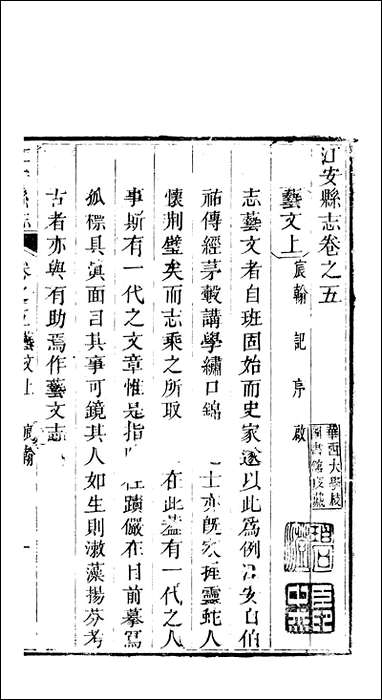 江安縣志卷之五
藝文上 宸翰 記 序 啟
華西大學校
圖書館庋藏
志藝文者自班固始而史家遂以此為例江安自伯
祐傳經茅轂講學繡口錦 士亦旣家握靈蛇人
懷荆璧矣而志乘之所取 在此葢有一代之人
事斯有一代之文章惟是指 往蹟儼在目前摹寫
孤標具眞面目其事可鏡其人如生則漱藻揚芬考
古者亦與有助焉作藝文志
卷之五藝文上 宸翰 一